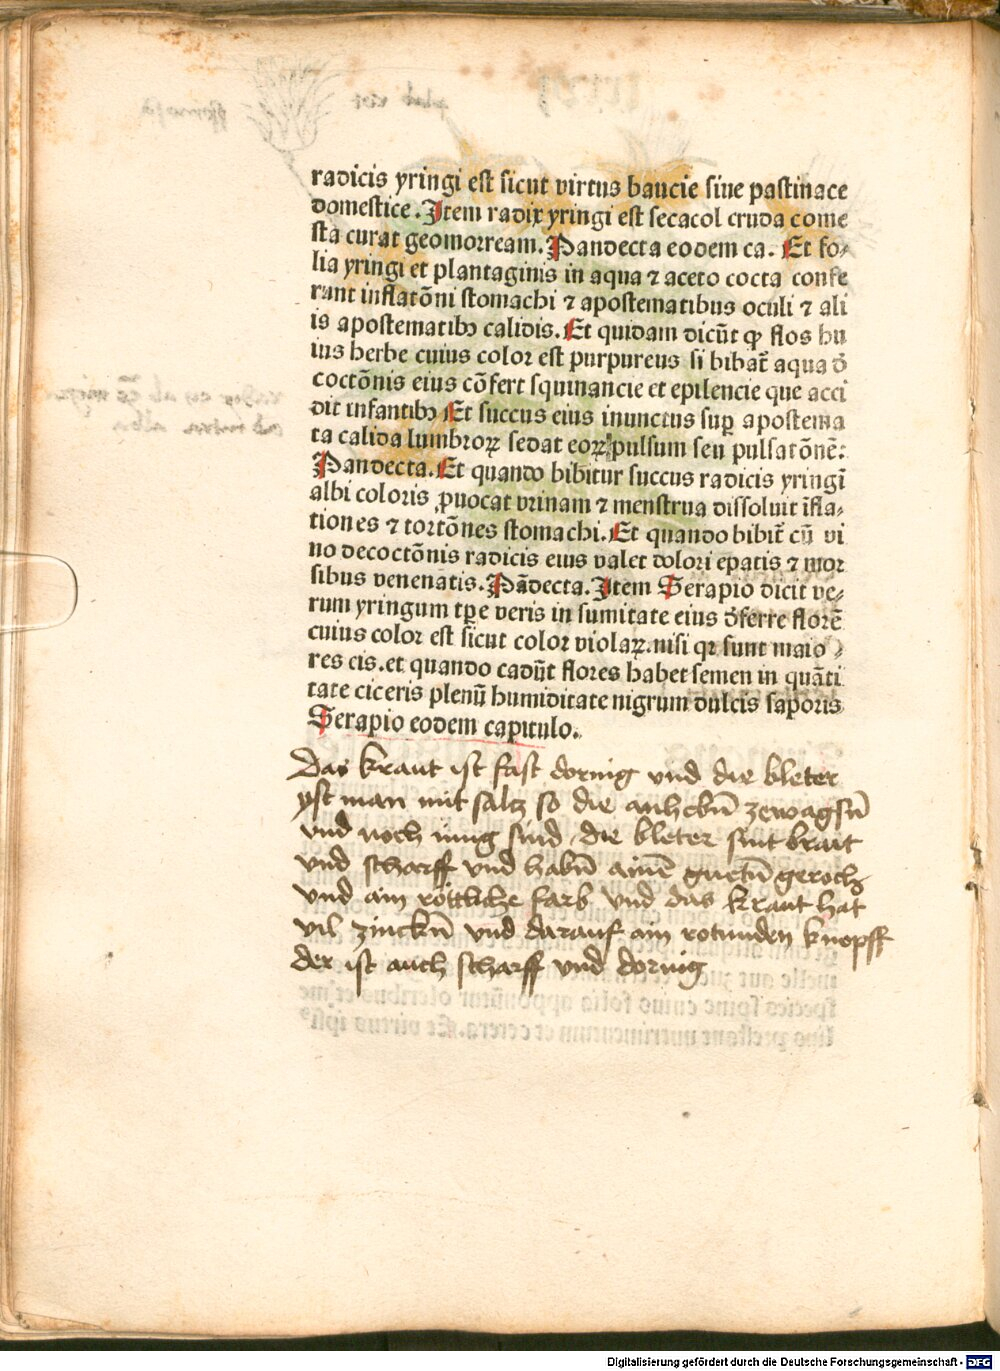 radicis yringi est sicut virtus baucie siue pastinace
domestice. Item radix yringi est secacol cruda come
sta curat geomorream. Pandecta eodem ca. Et fo⸗
lia yringi et plantaginis in aqua ⁊ aceto cocta confe
runt inflatōni stomachi ⁊ apostematibus oculi ⁊ ali
is apostematibꝰ calidis. Et quidam dicūt ꝙ flos hu
ius herbe cuius color est purpureus si bibat̄ aqua d̄
coctōnis eius cōfert squinancie et epilencie que acci
dit infantibꝰ Et succus eius inunctus sup̄ apostema
ta calida lumbroꝝ sedat eoꝝ pulsum seu pulsatōnē:
Pandecta. Et quando bibitur succus radicis yringi
albi coloris ꝓuocat vrinam ⁊ menstrua dissoluit īfla⸗
tiones ⁊ tortōnes stomachi. Et quando bibit̄ cū vi
no decoctōnis radicis eius valet dolori epatis ⁊ mor
sibus venenatis. Pādecta. Item Serapio dicit ve⸗
rum yringum tꝑe veris in sumitate eius d̄ferre florē
cuius color est sicut color violaꝝ. nisi qꝛ sunt maio⸗
res cis. et quando cadūt flores habet semen in quāti
tate ciceris plenū humiditate nigrum dulcis saporis
Serapio eodem capitulo.
Das kraut ist fast dornig vnd die bleter
yst man mit saltz so die anhebn̄ zewagsn̄
vnd noch iung sind die bleter sint brait
vnd scharff vnd habn̄ ainē guetn̄ geroch
vnd ain röttliche farb vnd das kraut hat
vil zinckn̄ vnd darauf ain rotunden knopff
der ist auch scharff vnd dornig
Digitalisierung gefördert durch die Deutsche Forschungsgemeinschaft - DFG